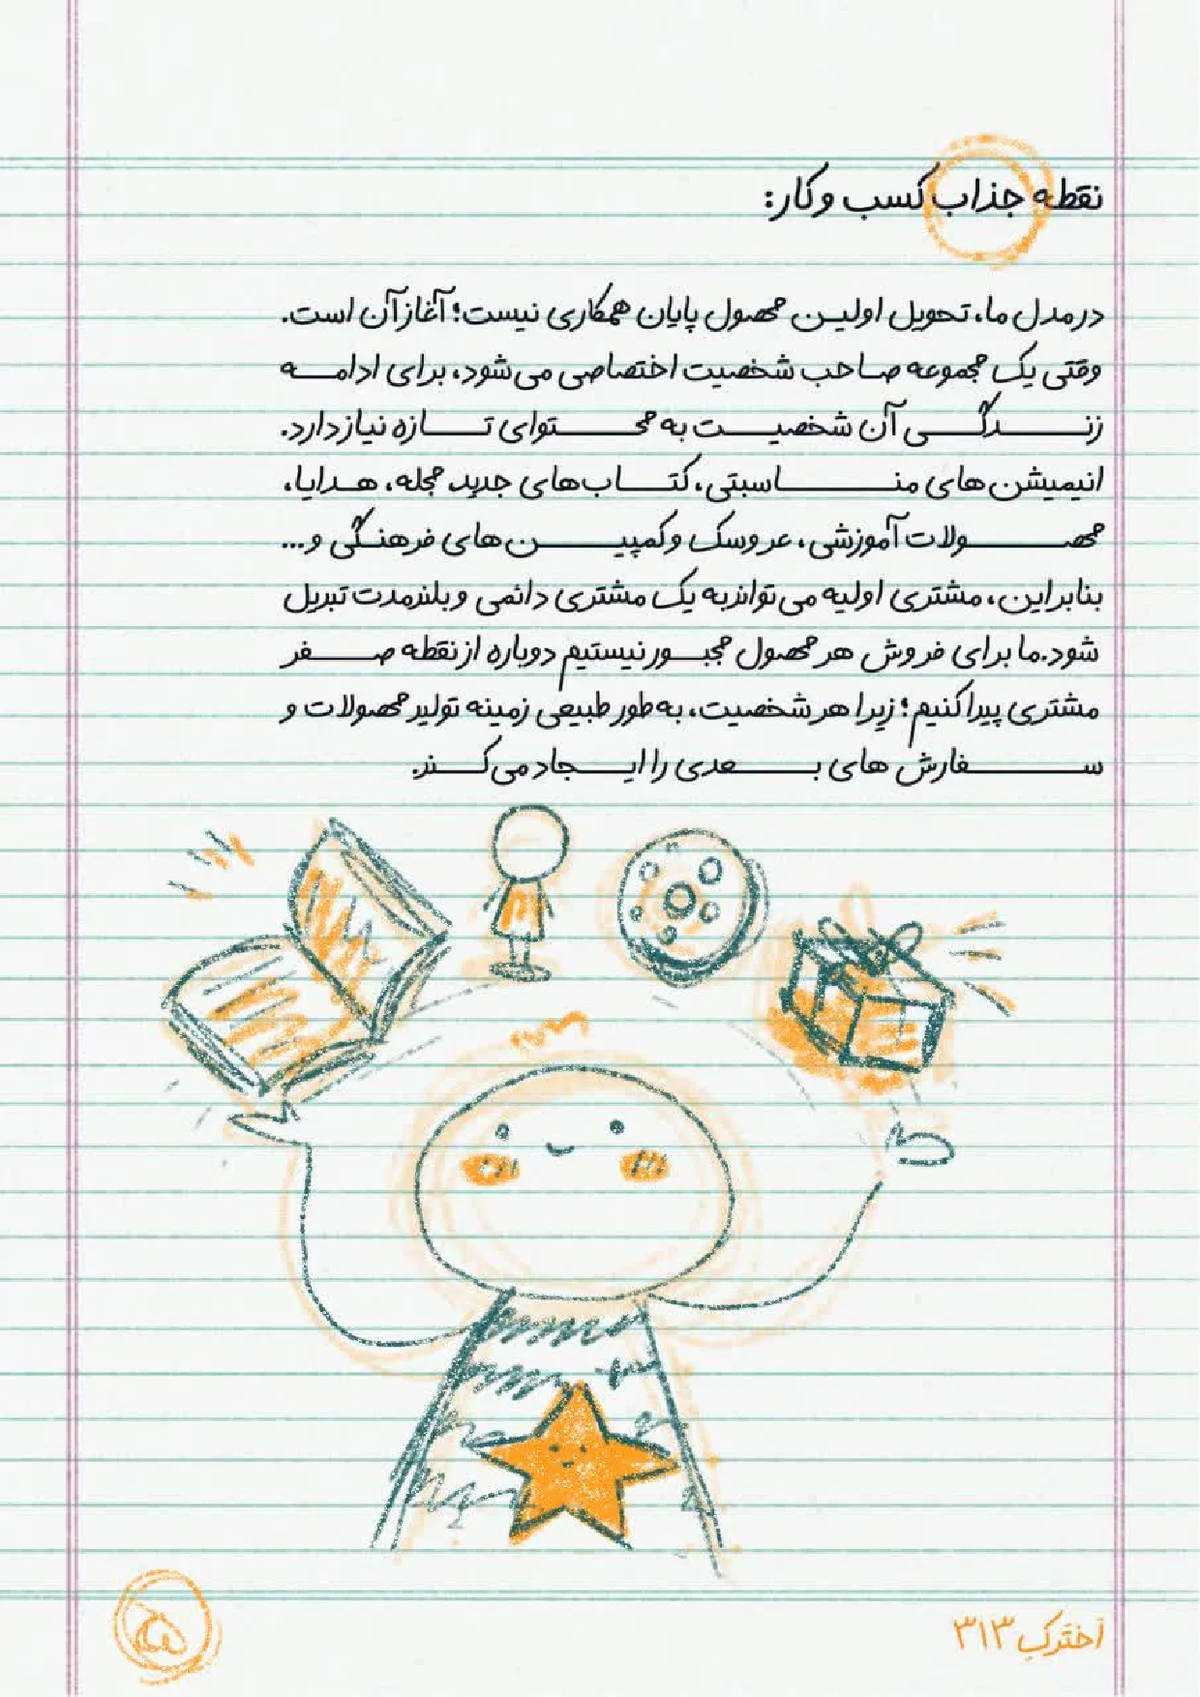 نقطه جذاب کسب و کار:
در مدل ما، تحویل اولین محصول پایان همکاری نیست؛ آغاز آن است.
وقتی یک مجموعه صاحب شخصیت اختصاصی می‌شود، برای ادامه
زندگی آن شخصیت به محتوای تازه نیاز دارد.
انیمیشن های مناسبتی، کتاب‌های جدید، مجله، هدایا،
محصولات آموزشی، عروسک و کمپین های فرهنگی و...
بنابراین، مشتری اولیه می‌تواند به یک مشتری دائمی و بلندمدت تبدیل
شود. ما برای فروش هر محصول مجبور نیستیم دوباره از نقطه صفر
مشتری پیدا کنیم؛ زیرا هر شخصیت، به طور طبیعی زمینه تولید محصولات و
سفارش های بعدی را ایجاد می‌کند.
اَختَرَکِ ۳۱۳
۵